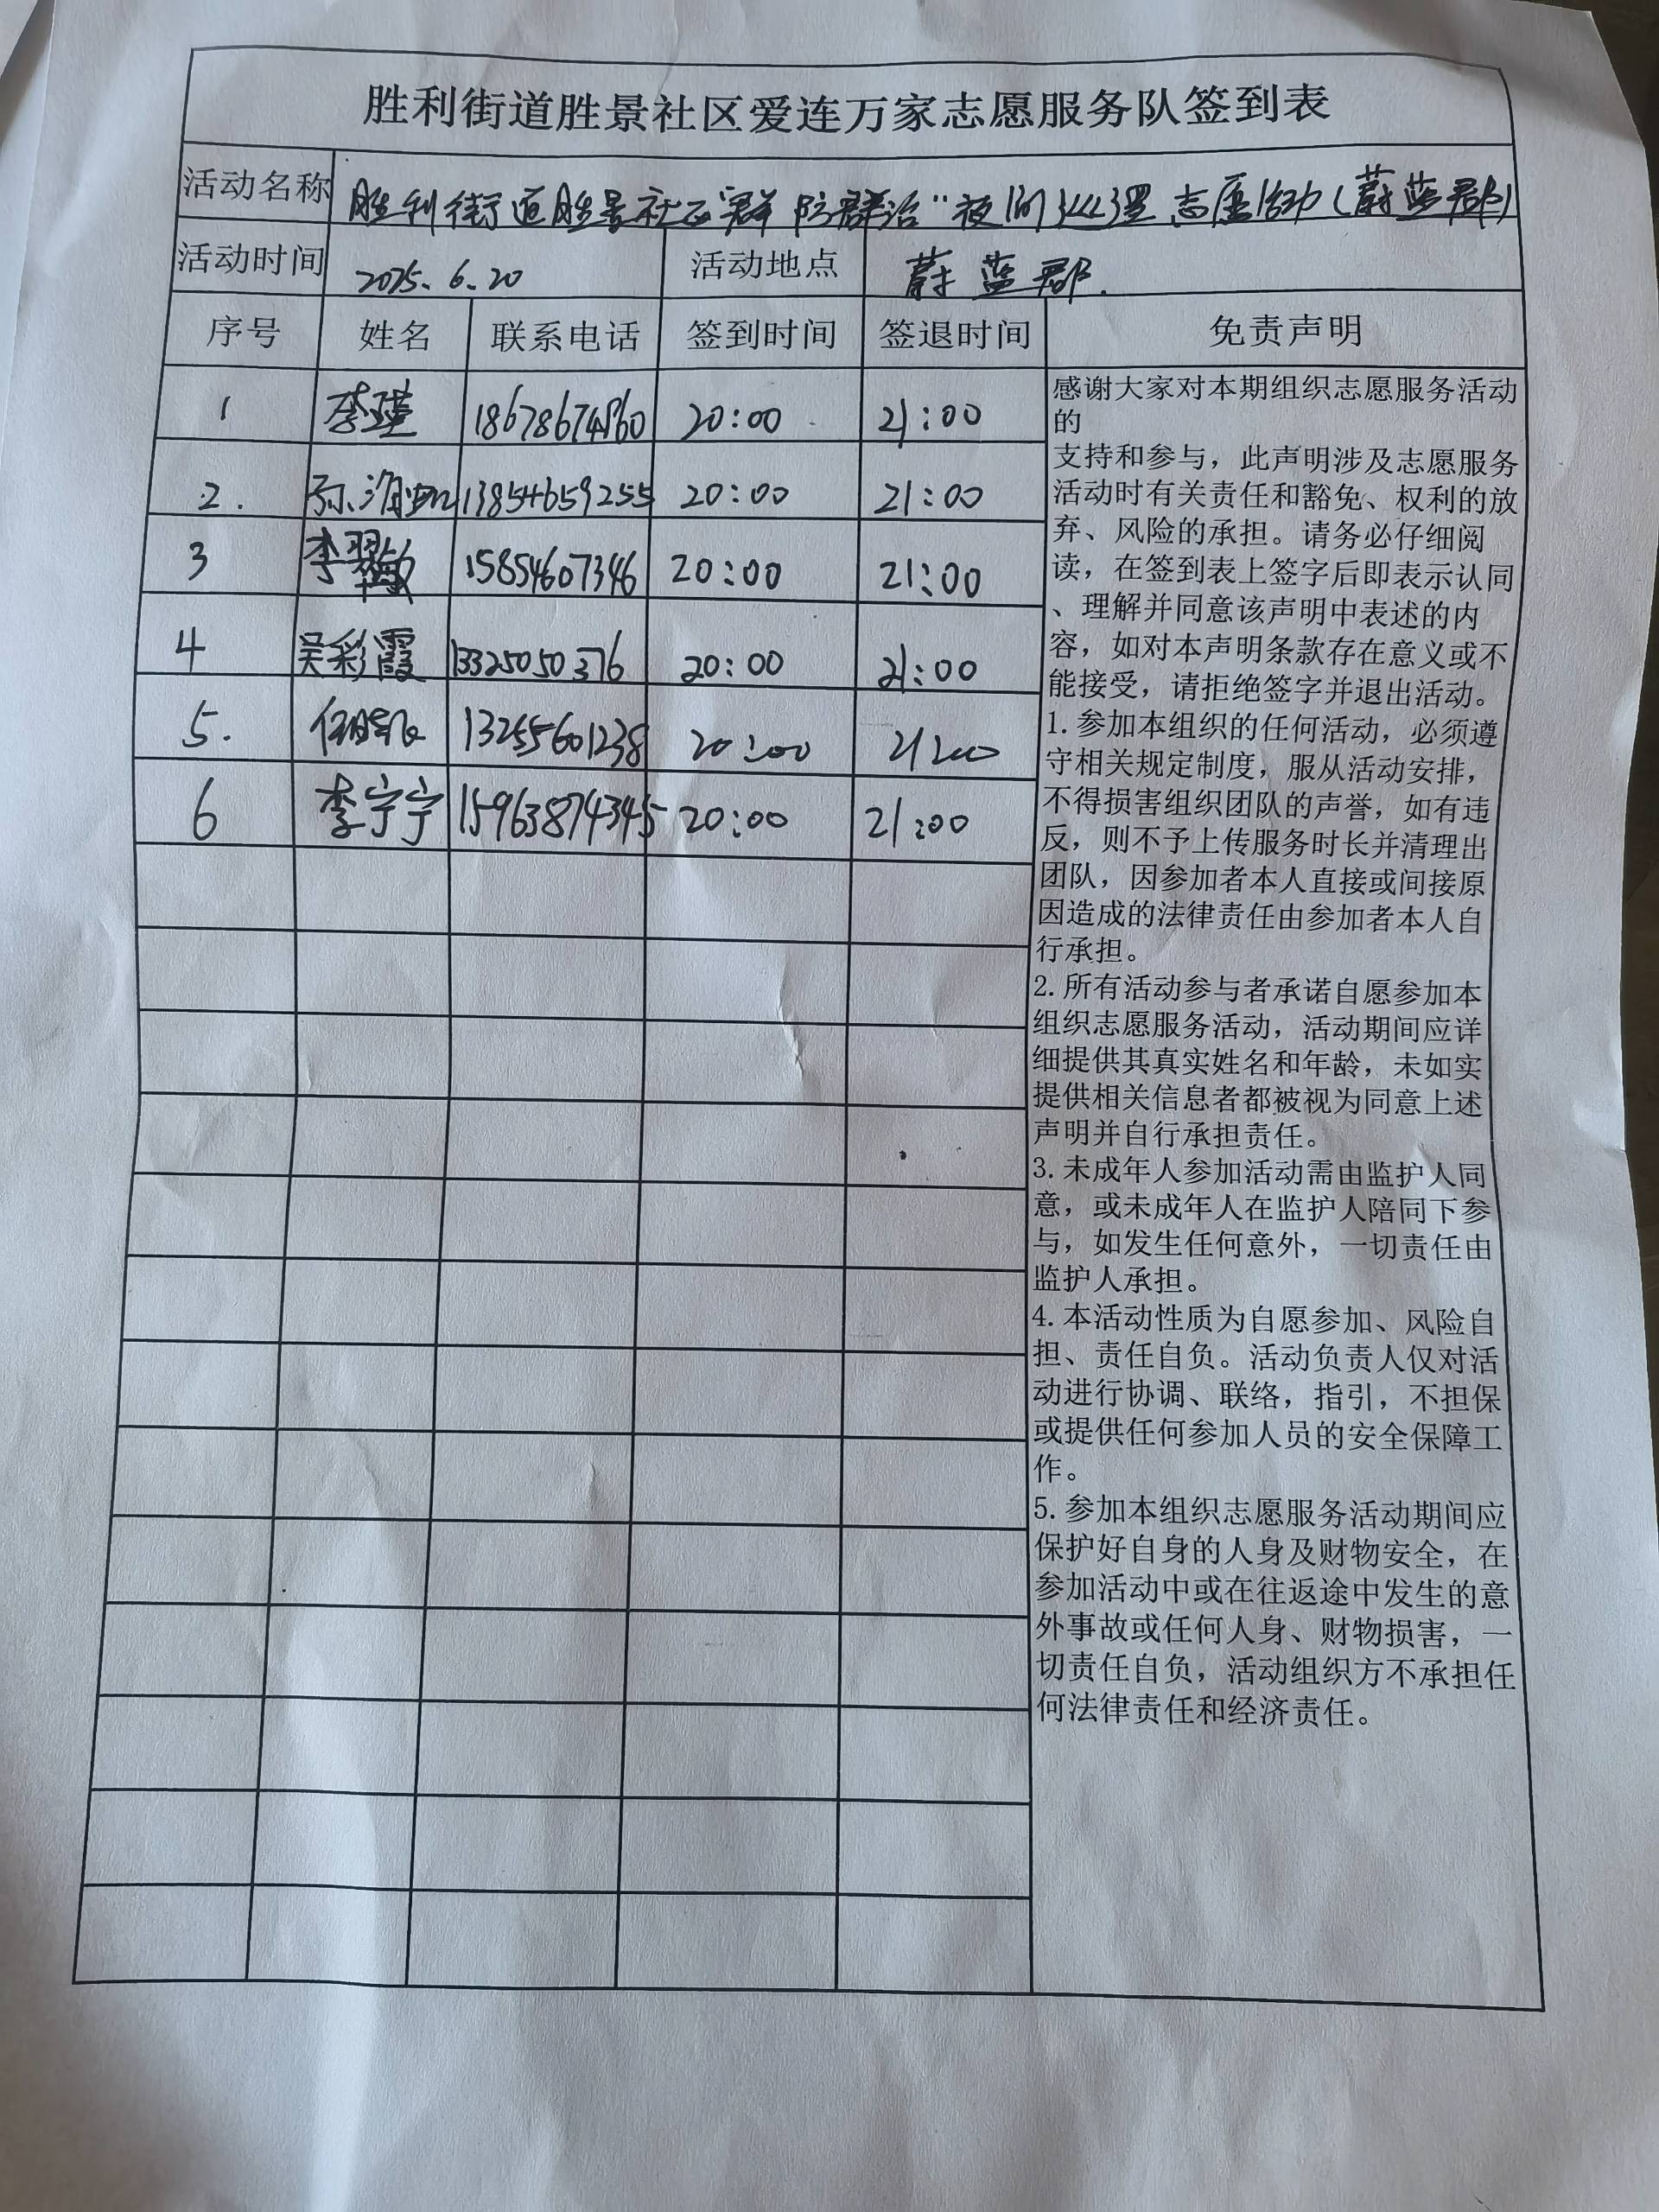 胜利街道胜景社区爱连万家志愿服务队签到表
活动名称 胜利街道胜景社区"群防群治"夜间巡逻志愿活动(蔚蓝郡)
活动时间 2025.6.20 活动地点 蔚蓝郡.
序号 姓名 联系电话 签到时间 签退时间 免责声明
1 李瑾 18678674860 20:00 21:00
2. 13854659255 20:00 21:00
3 李翠敏 15854607346 20:00 21:00
4 吴彩霞 13325050376 20:00 21:00
5. 13255601238 20:00 21:00
6 李宁宁 15963874345 20:00 21:00
感谢大家对本期组织志愿服务活动
的
支持和参与，此声明涉及志愿服务
活动时有关责任和豁免、权利的放
弃、风险的承担。请务必仔细阅
读，在签到表上签字后即表示认同
、理解并同意该声明中表述的内
容，如对本声明条款存在意义或不
能接受，请拒绝签字并退出活动。
1.参加本组织的任何活动，必须遵
守相关规定制度，服从活动安排，
不得损害组织团队的声誉，如有违
反，则不予上传服务时长并清理出
团队，因参加者本人直接或间接原
因造成的法律责任由参加者本人自
行承担。
2.所有活动参与者承诺自愿参加本
组织志愿服务活动，活动期间应详
细提供其真实姓名和年龄，未如实
提供相关信息者都被视为同意上述
声明并自行承担责任。
3.未成年人参加活动需由监护人同
意，或未成年人在监护人陪同下参
与，如发生任何意外，一切责任由
监护人承担。
4.本活动性质为自愿参加、风险自
担、责任自负。活动负责人仅对活
动进行协调、联络，指引，不担保
或提供任何参加人员的安全保障工
作。
5.参加本组织志愿服务活动期间应
保护好自身的人身及财物安全，在
参加活动中或在往返途中发生的意
外事故或任何人身、财物损害，一
切责任自负，活动组织方不承担任
何法律责任和经济责任。